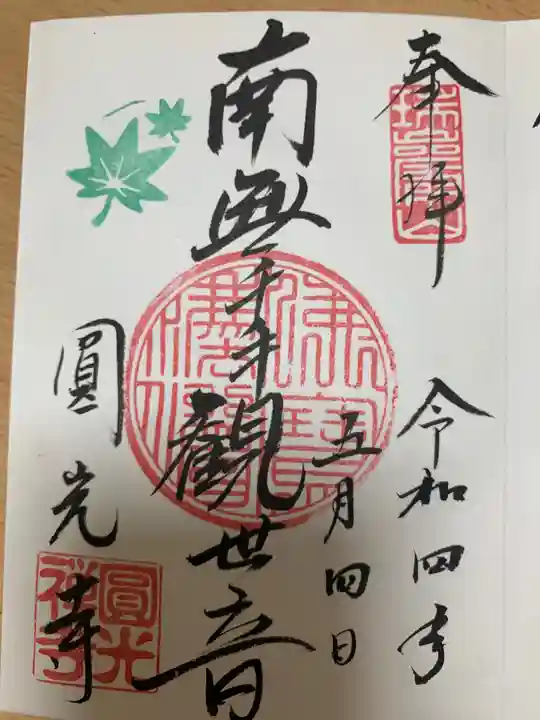 奉拝
令和四年
五月四日
南無千手観世音
圓光寺
圓光
禅寺